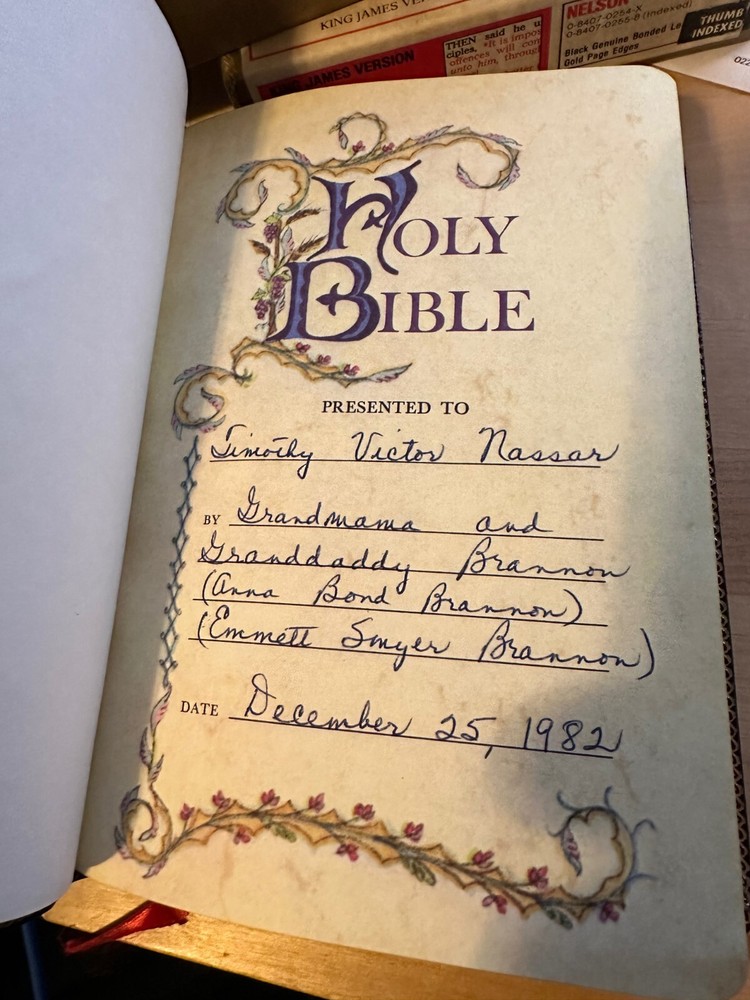 KING JAMES VE
KING JAMES VERSION
THEN said he u
ciples, It is impos
offences will con
unto him, throug
NELSON
0-8407-0254-X
0-8407-0255-8 (Indexed)
Black Genuine Bonded Le
Gold Page Edges
THUMB
INDEXED
022
HOLY
BIBLE
PRESENTED TO
Timothy Victor Nassar
BY Grandmama and
Granddaddy Brannon
(Anna Bond Brannon)
(Emmett Smyer Brannon)
DATE December 25, 1982